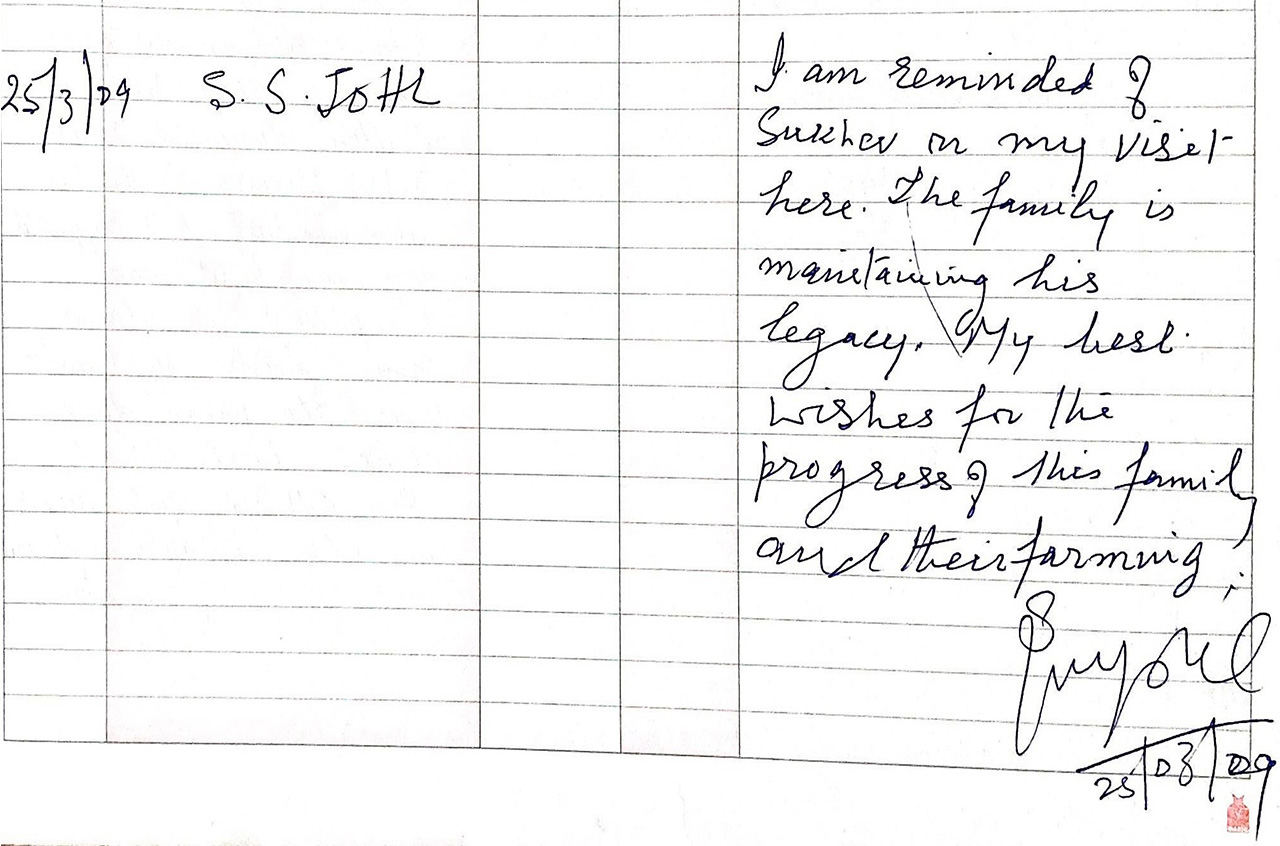 25/3/09 S. S. JOHL
I am reminded of
Sukhev on my visit
here. The family is
maintaining his
legacy. My best
wishes for the
progress of this family
and their farming.
25/03/09